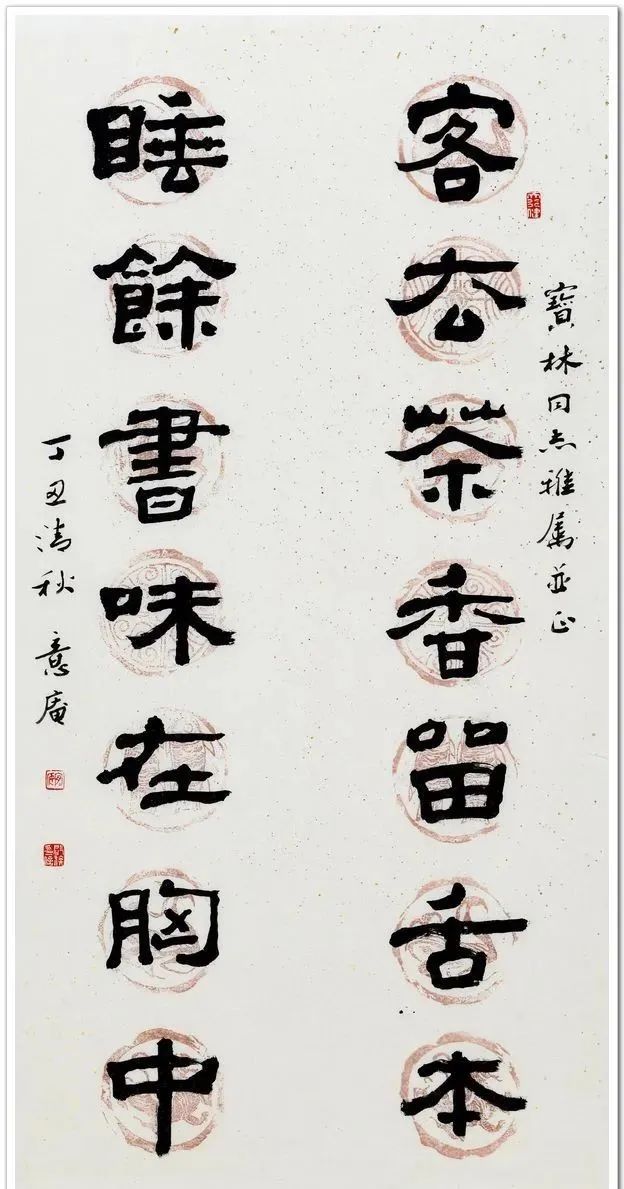 寶林同志雅屬並正
客去茶香留舌本
睡餘書味在胸中
丁丑清秋 意庵